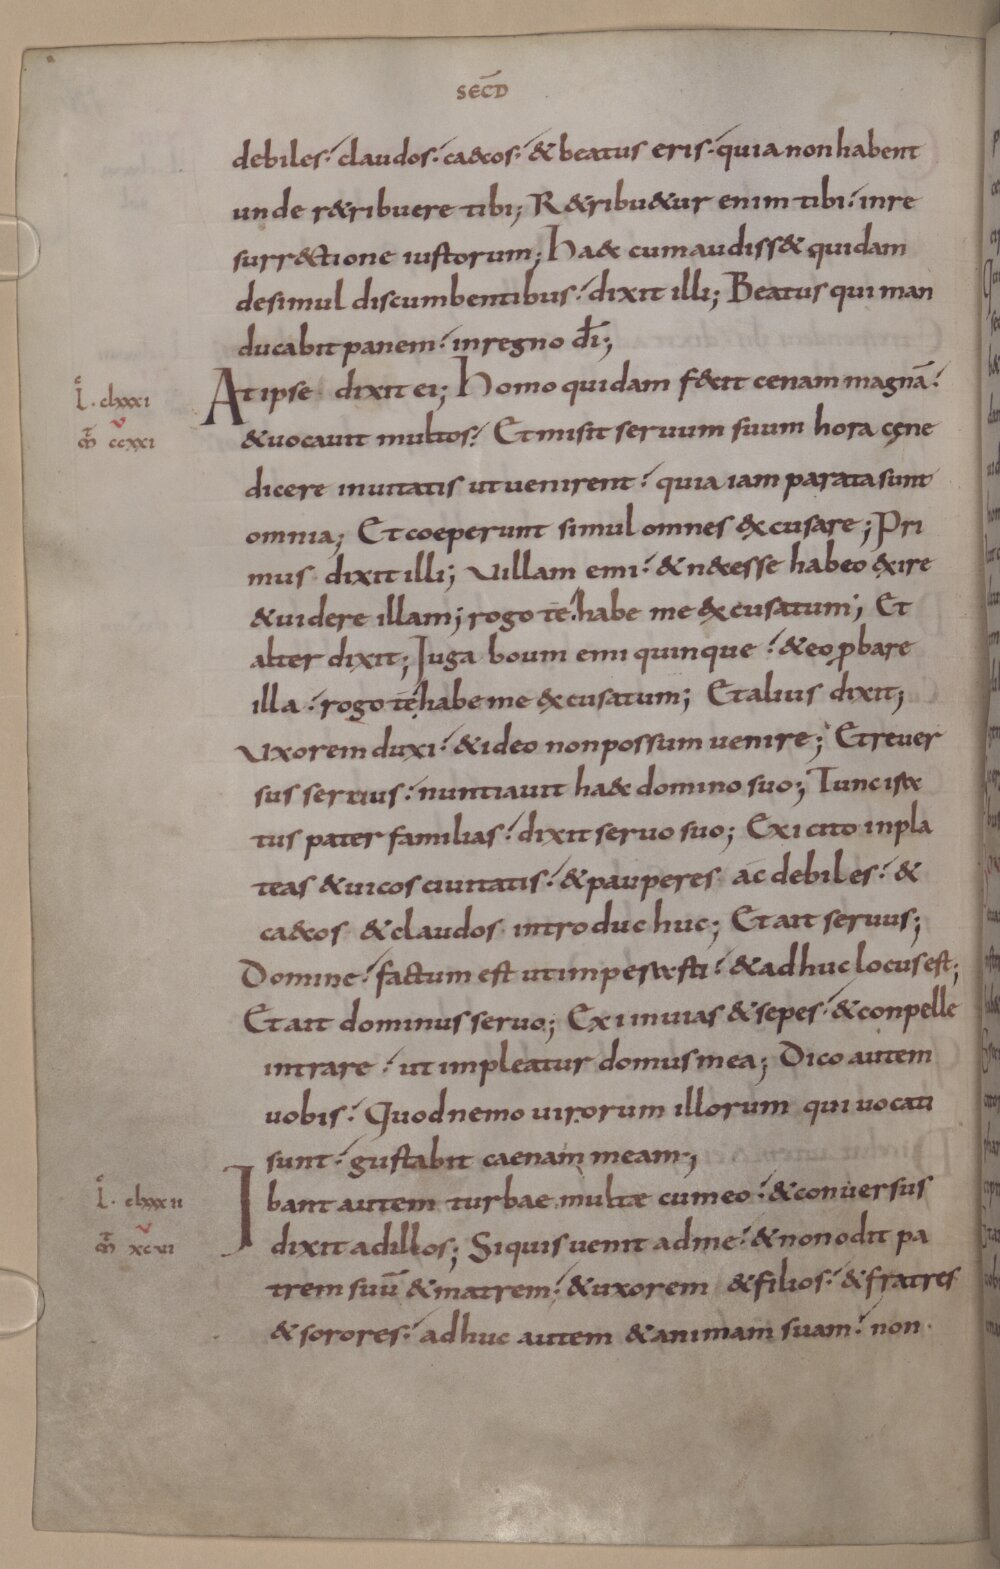 SECD̄
debiles⸱ claudos⸱ ca&cos⸱ & beatus eris⸱ quia non habent
unde r&ribuere tibi; R&ribu&ur enim tibi⸱ in re
surr&ctione iustorum; Ha&c cum audiss& quidam
de simul discumbentibus⸱ dixit illi; Beatus qui man
ducabit panem⸱ in regno dī;
At ipse dixit ei; Homo quidam fecit cenam magnā⸱
L. clxxxi
& uocauit multos⸱ Et misit seruum suum hora cęne
m̄ ccxxi
dicere inuitatis ut uenirent⸱ quia iam parata sunt
omnia; Et coeperunt simul omnes excusare; Pri
mus dixit illi; Villam emi⸱ & n&cesse habeo exire
& uidere illam; rogo te⸱ habe me excusatum; Et
alter dixit; Iuga boum emi quinque⸱ & eo ꝓbare
illa⸱ rogo te⸱ habe me excusatum; Et alius dixit;
Vxorem duxi⸱ & ideo non possum uenire; Et reuer
sus seruus⸱ nuntiauit ha&c domino suo; Tunc ira
tus pater familias⸱ dixit seruo suo; Exi cito in pla
teas & uicos ciuitatis⸱ & pauperes ac debiles⸱ &
ca&cos & claudos introduc huc; Et ait seruus;
Domine⸱ factum est ut imperasti⸱ & adhuc locus est;
Et ait dominus seruo; Exi in uias & sepes⸱ & conpelle
intrare⸱ ut impleatur domus mea; Dico autem
uobis⸱ Quod nemo uirorum illorum qui uocati
sunt⸱ gustabit caenam meam;
L. clxxxii
Ibant autem turbae multae cum eo⸱ & conuersus
m̄ xcvi
dixit ad illos; Si quis uenit ad me⸱ & non odit pa
trem suū & matrem⸱ & uxorem & filios⸱ & fratres
& sorores⸱ adhuc autem & animam suam⸱ non